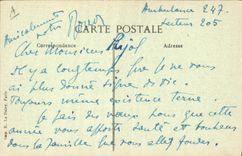 Ambulance 247.
Secteur 205
Amicalement
notre
CARTE POSTALE
Correspondance
Adresse
Cher Monsieur Pujol
Il y a longtemps que je ne vous
ai plus donné signe de vie.
Toujours même existence terne.
Je fais des vœux pour que cette
année vous apporte santé et bonheur
dans la famille que vous allez fonder.